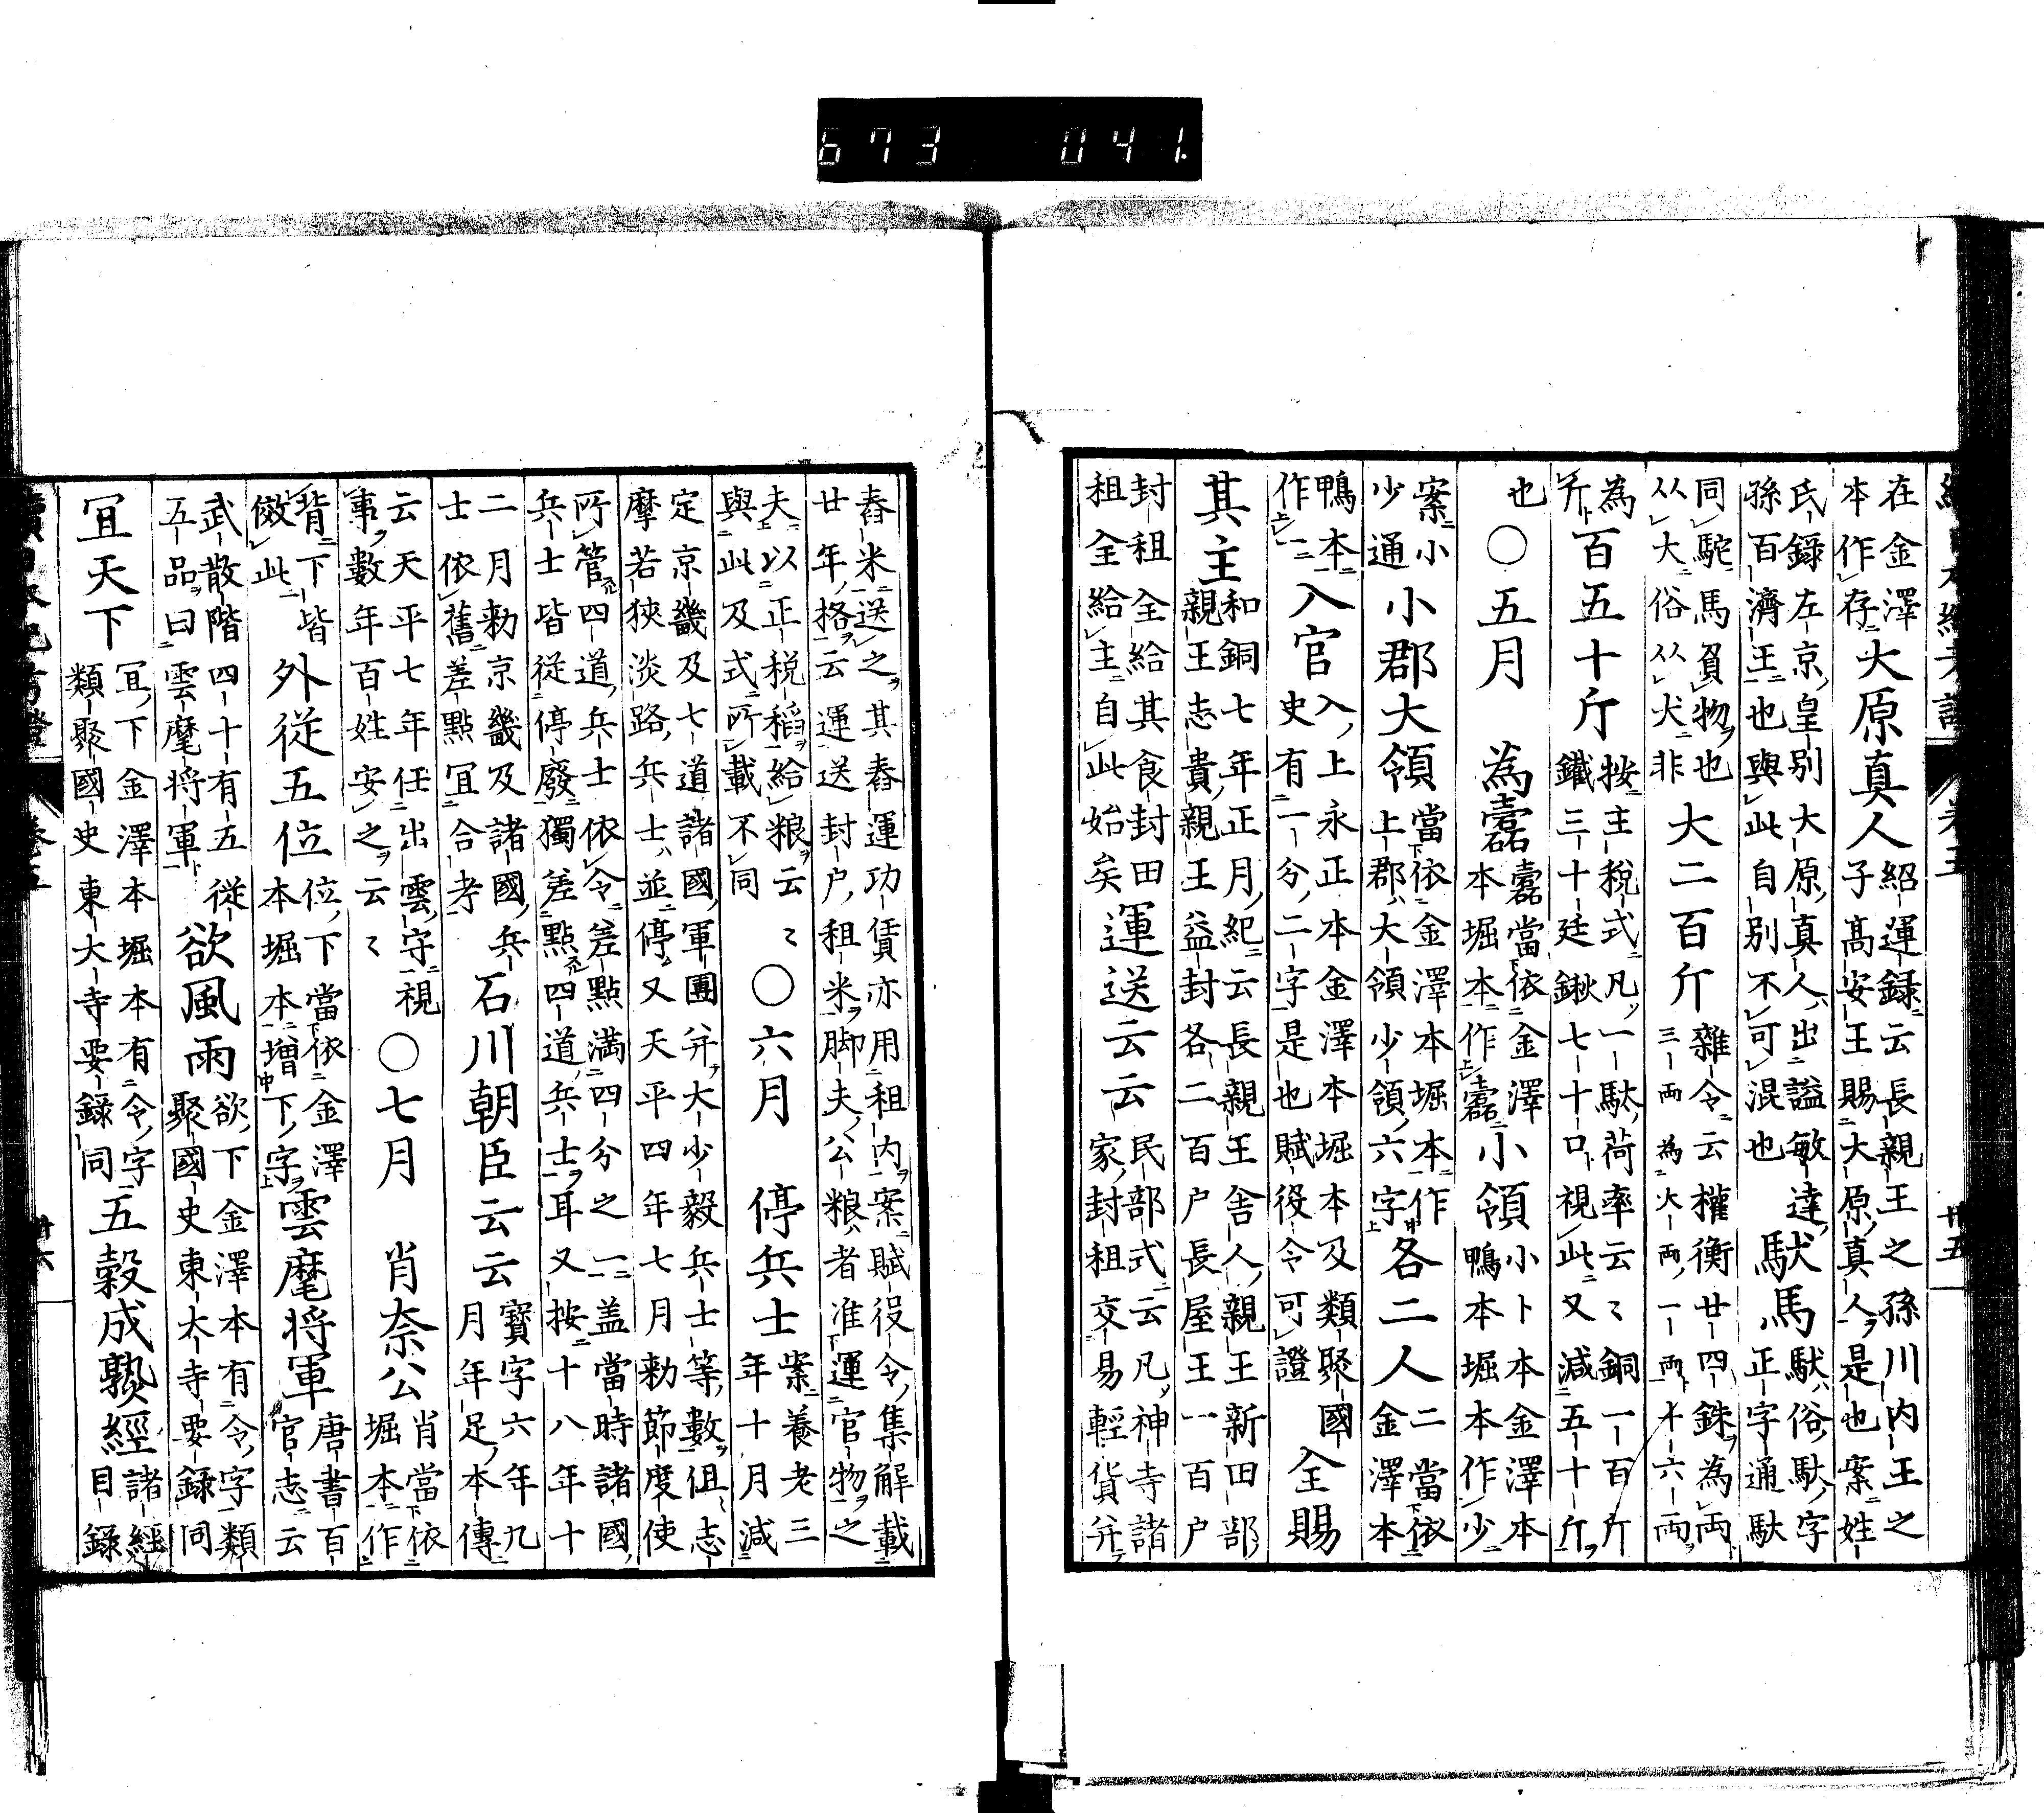 在金澤
本作存
大原真人
紹運録云長親王之孫川内王之
子高安王賜大原真人是也案姓
氏録左京皇別大原真人出謚敏達
孫百濟王也與此自別不可混也
馱馬
馱俗馱字
正字通馱
同駝馬負物也
从大俗从犬非
大二百斤
雜令云權衡廿四銖為兩
三兩為大兩一兩十六兩
為
斤
百五十斤
按主税式凡一馱荷率云〻銅一百斤
鐵三十廷鍬七十口視此又減五十斤
也
○五月
為
當依金澤
本堀本作
小領
小卜本金澤本
鴨本堀本作少
案小
少通
小郡大領
當依金澤本堀本作
上郡大領少領六字
各二人
二當依
金澤本
鴨本
作一二
入官
入上永正本金澤本堀本及類聚國
史有一分二字是也賦役令可證
全賜
其主
和銅七年正月紀云長親王舎人親王新田部
親王志貴親王益封各二百戸長屋王一百戸
封租全給其食封田
租全給主自此始矣
運送云云
民部式云凡神寺諸
家封租交易輕貨并
舂米送之其舂運功賃亦用租内案賦役令集解載
廿年格云運送封戸租米脚夫公粮者准運官物之
夫以正税稻給粮云
與此及式所載不同
〻
○六月
停兵士
案養老三
年十月減
定京畿及七道諸國軍團并大少毅兵士等數伹志
摩若狹淡路兵士並停又天平四年七月勅節度使
所管四道兵士依令差點満四分之一盖當時諸國
兵士皆從停廢獨差點四道兵士耳又按十八年十
二月勅京畿及諸國兵
士依舊差點冝合考
石川朝臣云云
寶字六年九
月年足本傳
云天平七年任出雲守視
事數年百姓安之云〻
○七月
肖奈公
肖當依
堀本作
背下皆
傚此
外從五位
位下當依金澤
本堀本増下字
雲麾将軍
唐書百
官志云
武散階四十有五從
五品曰雲麾将軍
欲風雨
欲下金澤本有令字類
聚國史東大寺要録同
冝天下
冝下金澤本堀本有令字
類聚國史東大寺要録同
五穀成熟經
諸經
目録